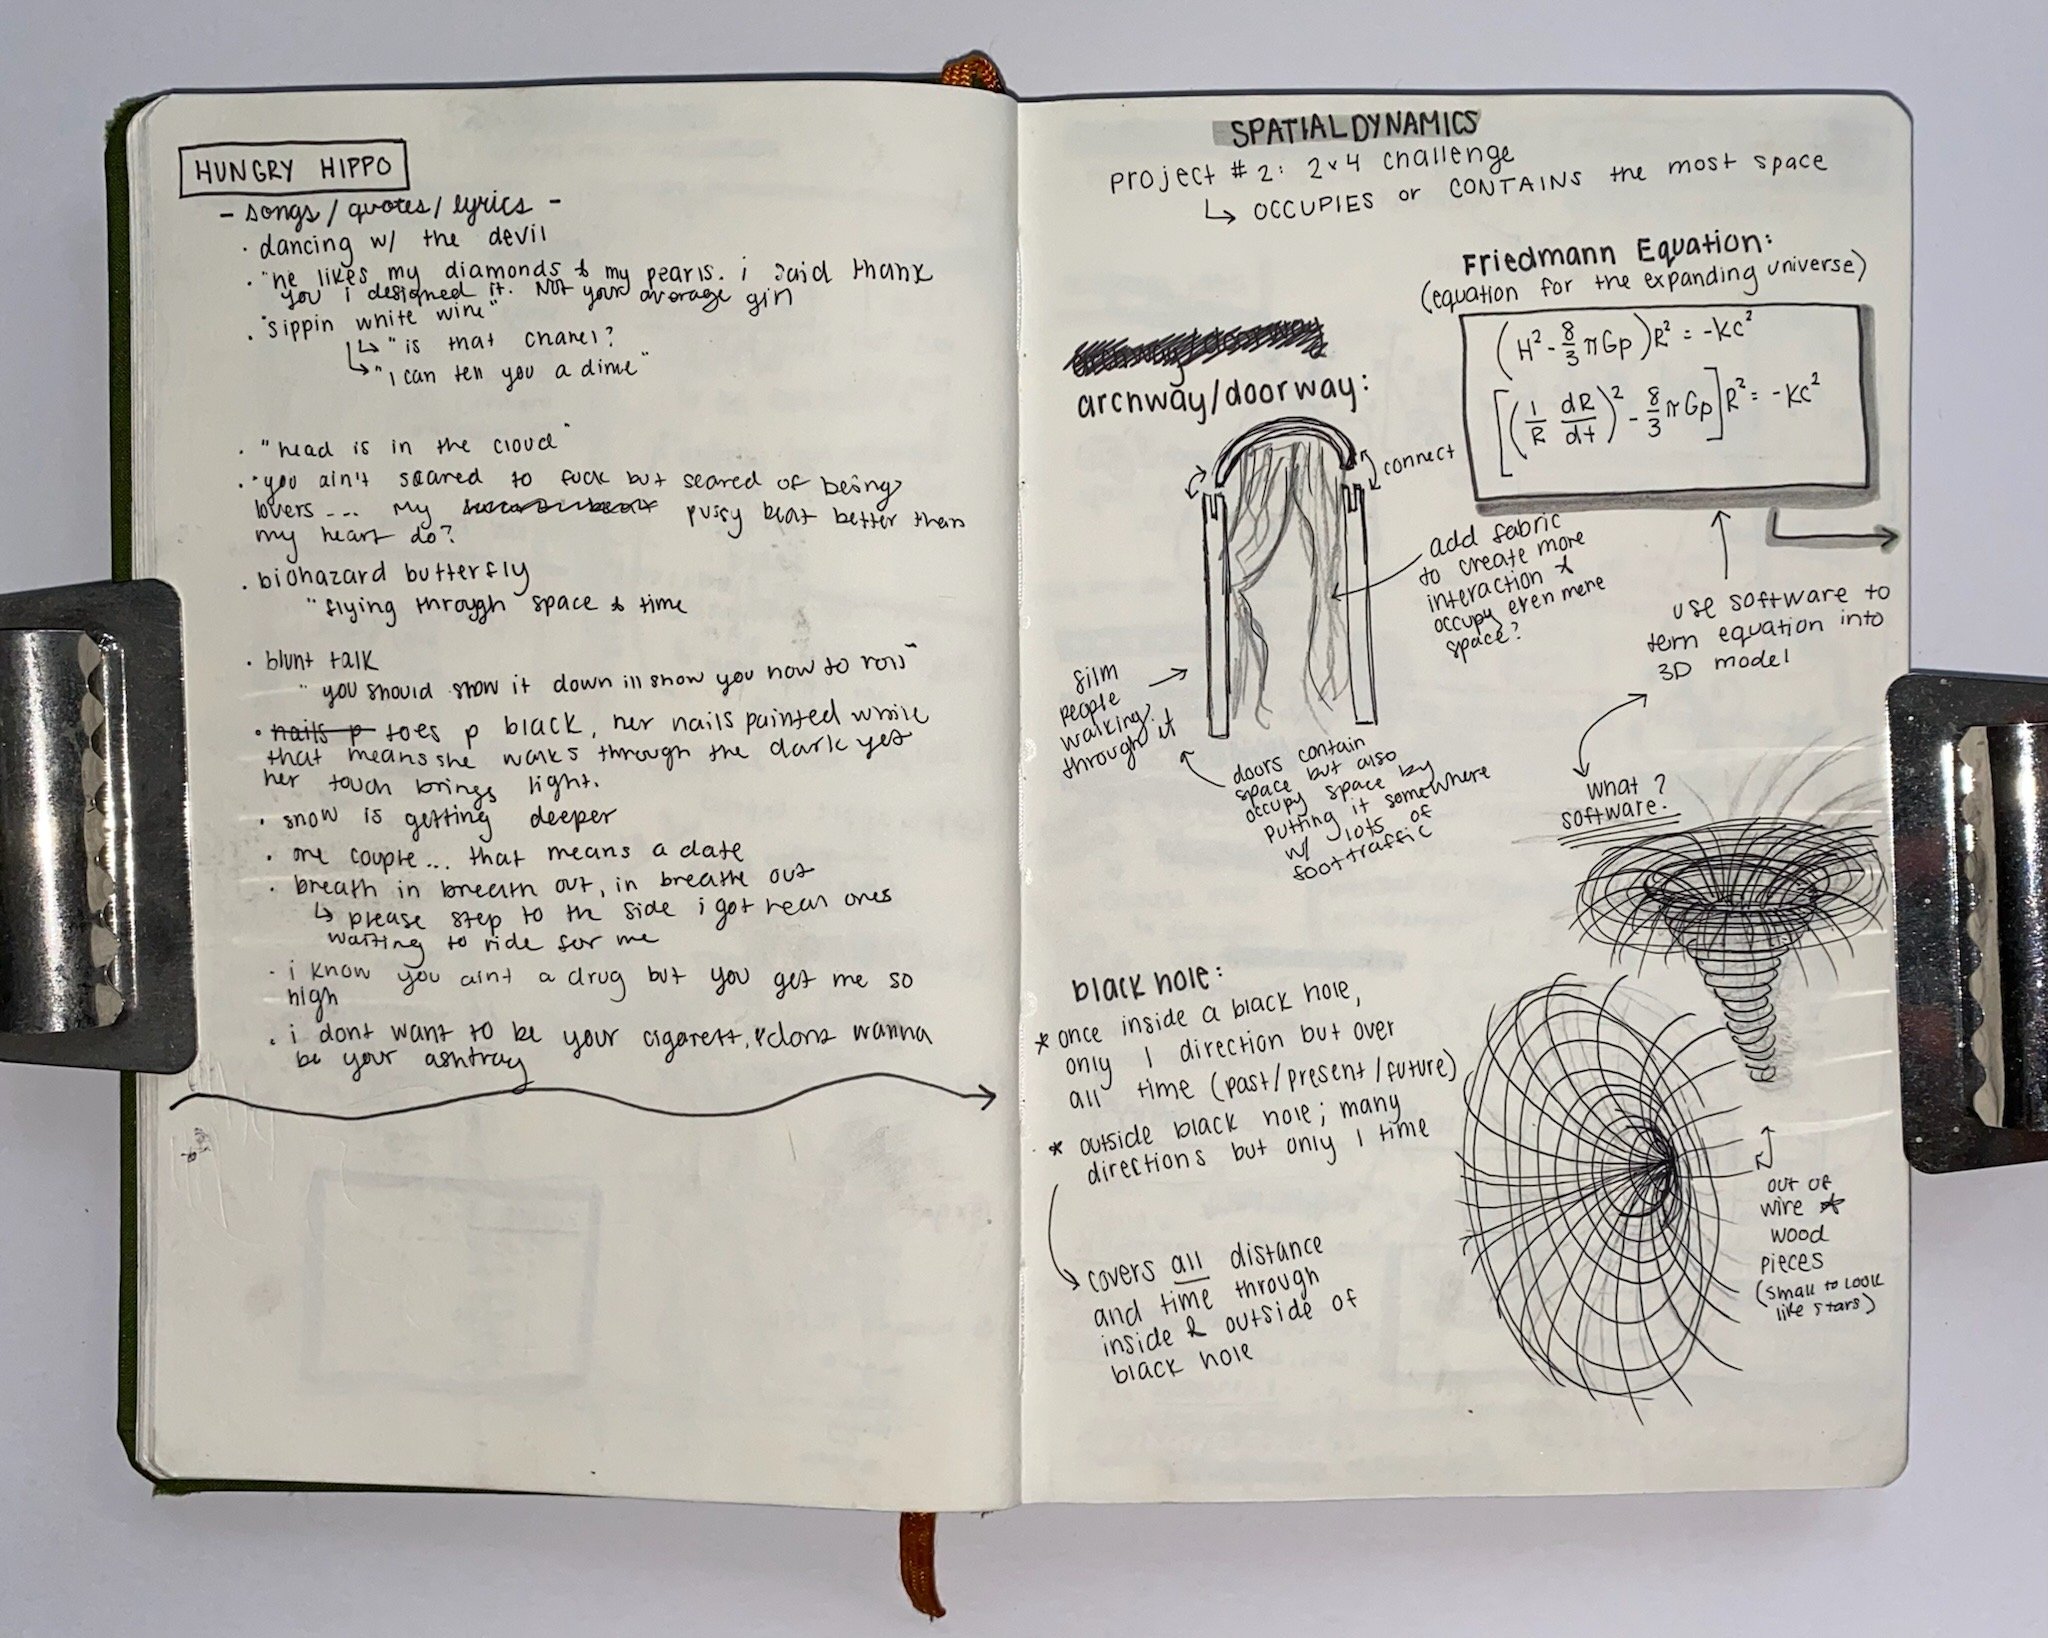 HUNGRY HIPPO
- songs/quotes/lyrics -
· dancing w/ the devil
· "he likes my diamonds & my pearls. i said thank
you i designed it. Not your average girl
· "sippin white wine"
↳ "is that chanel?
↳ "i can tell you a dime"
· "head is in the cloud"
· "you ain't scared to fuck but scared of being
lovers... my pussy beat better than
my heart do?
· biohazard butterfly
"flying through space & time
· blunt talk
"you should slow it down ill show you how to roll"
· nails p toes p black, her nails painted white
that means she walks through the dark yet
her touch brings light.
· snow is getting deeper
· one couple... that means a date
· breath in breath out, in breathe out
↳ please step to the side i got real ones
waiting to ride for me
· i know you aint a drug but you get me so
high
· i dont want to be your cigarett, dont wanna
be your ashtray
SPATIAL DYNAMICS
project #2: 2x4 challenge
↳ OCCUPIES or CONTAINS the most space
Friedmann Equation:
(equation for the expanding universe)
(H² - 8/3 πGp)R² = -kc²
[(1/R dR/dt)² - 8/3 πGp]R² = -kc²
use software to
tern equation into
3D model
what?
software.
archway/doorway:
connect
add fabric
to create more
interaction &
occupy even more
space?
film
people
walking
through it
doors contain
space but also
occupy space by
putting it somewhere
w/ lots of
foot traffic
black hole:
* once inside a black hole,
only 1 direction but over
all time (past/present/future)
* outside black hole; many
directions but only 1 time
covers all distance
and time through
inside & outside of
black hole
out of
wire &
wood
pieces
(small to look
like stars)